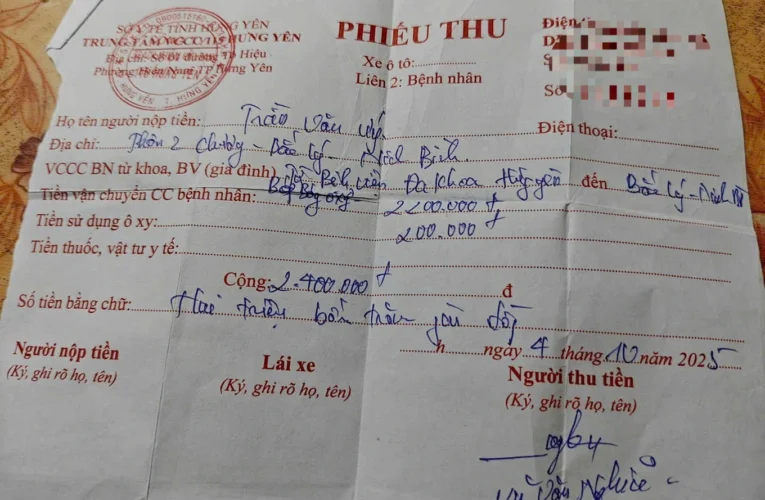 SỞ Y TẾ TỈNH HƯNG YÊN
TRUNG TÂM VCCC 115 HƯNG YÊN
Địa chỉ: Số 01 đường Tô Hiệu
Phường Hiến Nam, TP Hưng Yên
PHIẾU THU
Xe ô tô:
Liên 2: Bệnh nhân
Điện
Số
Họ tên người nộp tiền: Trần Văn Điện thoại:
Địa chỉ: Thôn 2 - Bắc Lý - Ninh Bình
VCCC BN từ khoa, BV (gia đình) Bệnh viện Đa khoa Hưng yên đến Bắc Lý - Ninh
Tiền vận chuyển CC bệnh nhân: 2200.000đ
Tiền sử dụng ô xy: 200.000đ
Tiền thuốc, vật tư y tế:
Cộng: 2.400.000đ đ
Số tiền bằng chữ: Hai triệu bốn trăm đồng
h ngày 4 tháng 10 năm 2025
Người nộp tiền
(Ký, ghi rõ họ, tên)
Lái xe
(Ký, ghi rõ họ, tên)
Người thu tiền
(Ký, ghi rõ họ, tên)
Văn